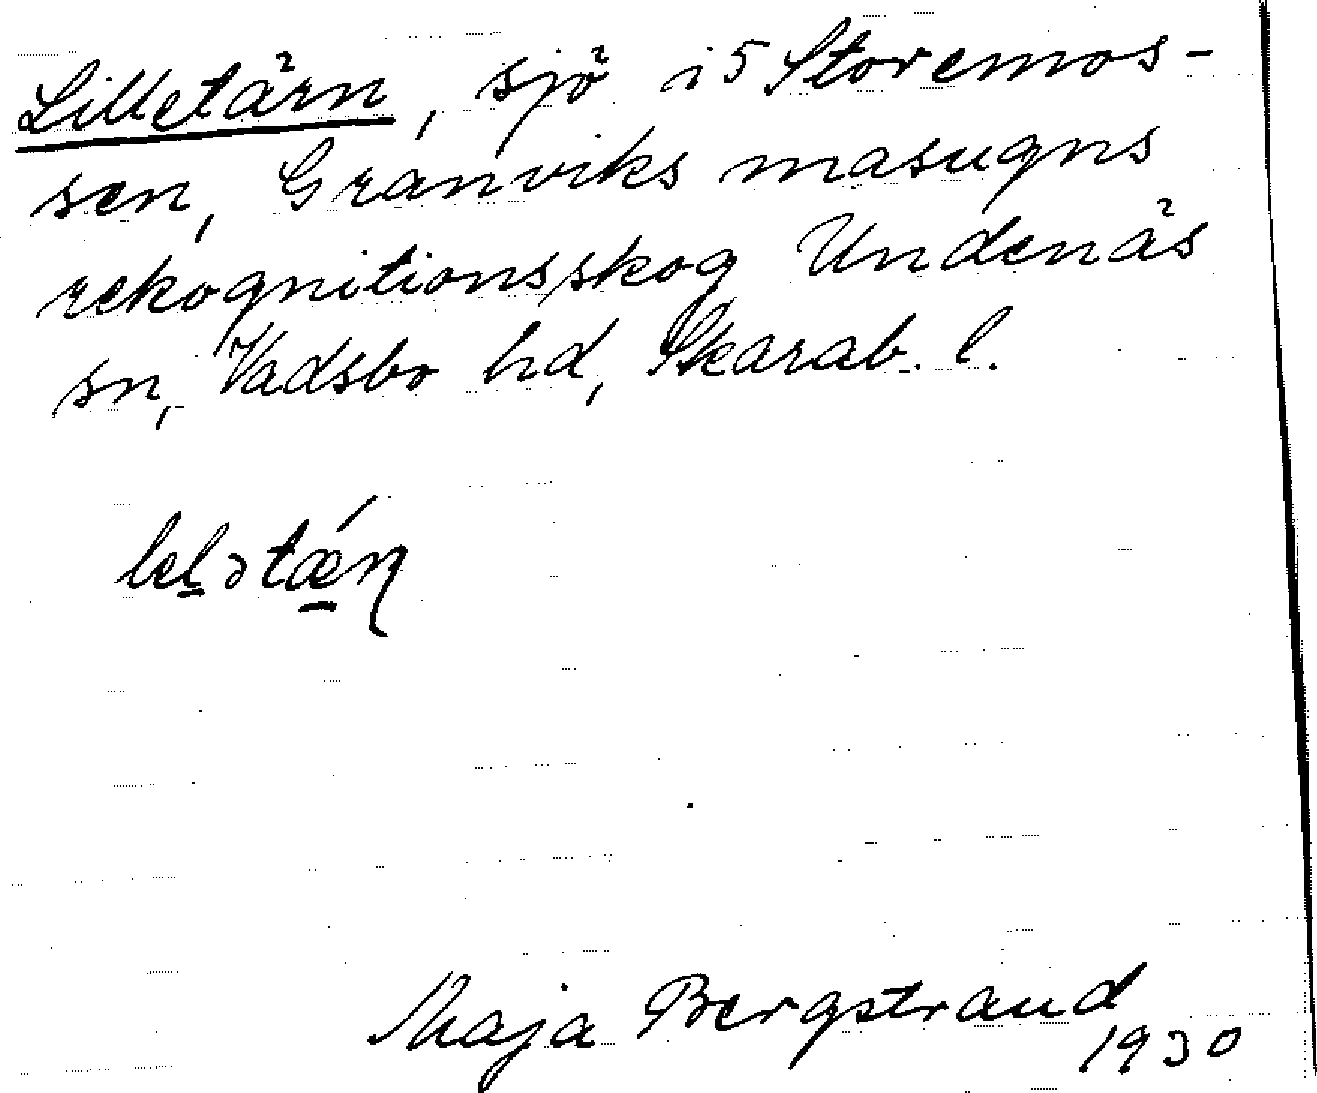 Lilletärn, sjö i 5 Storemos-
sen, Granviks masugns
rekognitionsskog Undenäs
sn, Vadsbo hd, Skarab. l.
leḻətǽ̱ɳ
Maja Bergstrand
1930